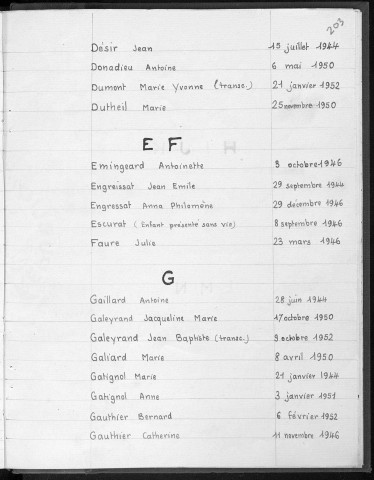 203
Désir Jean 15 juillet 1944
Donadieu Antoine 6 mai 1950
Dumont Marie Yvonne (transc.) 21 janvier 1952
Dutheil Marie 25 novembre 1950
E F
Emingeard Antoinette 9 octobre 1946
Engreissat Jean Emile 29 septembre 1944
Engressat Anna Philomène 29 décembre 1946
Escurat (Enfant présenté sans vie) 8 septembre 1946
Faure Julie 23 mars 1946
G
Gaillard Antoine 28 juin 1944
Galeyrand Jacqueline Marie 17 octobre 1950
Galeyrand Jean Baptiste (transc.) 9 octobre 1952
Galiard Marie 8 avril 1950
Gatignol Marie 21 janvier 1944
Gatignol Anne 3 janvier 1951
Gauthier Bernard 6 février 1952
Gauthier Catherine 11 novembre 1946